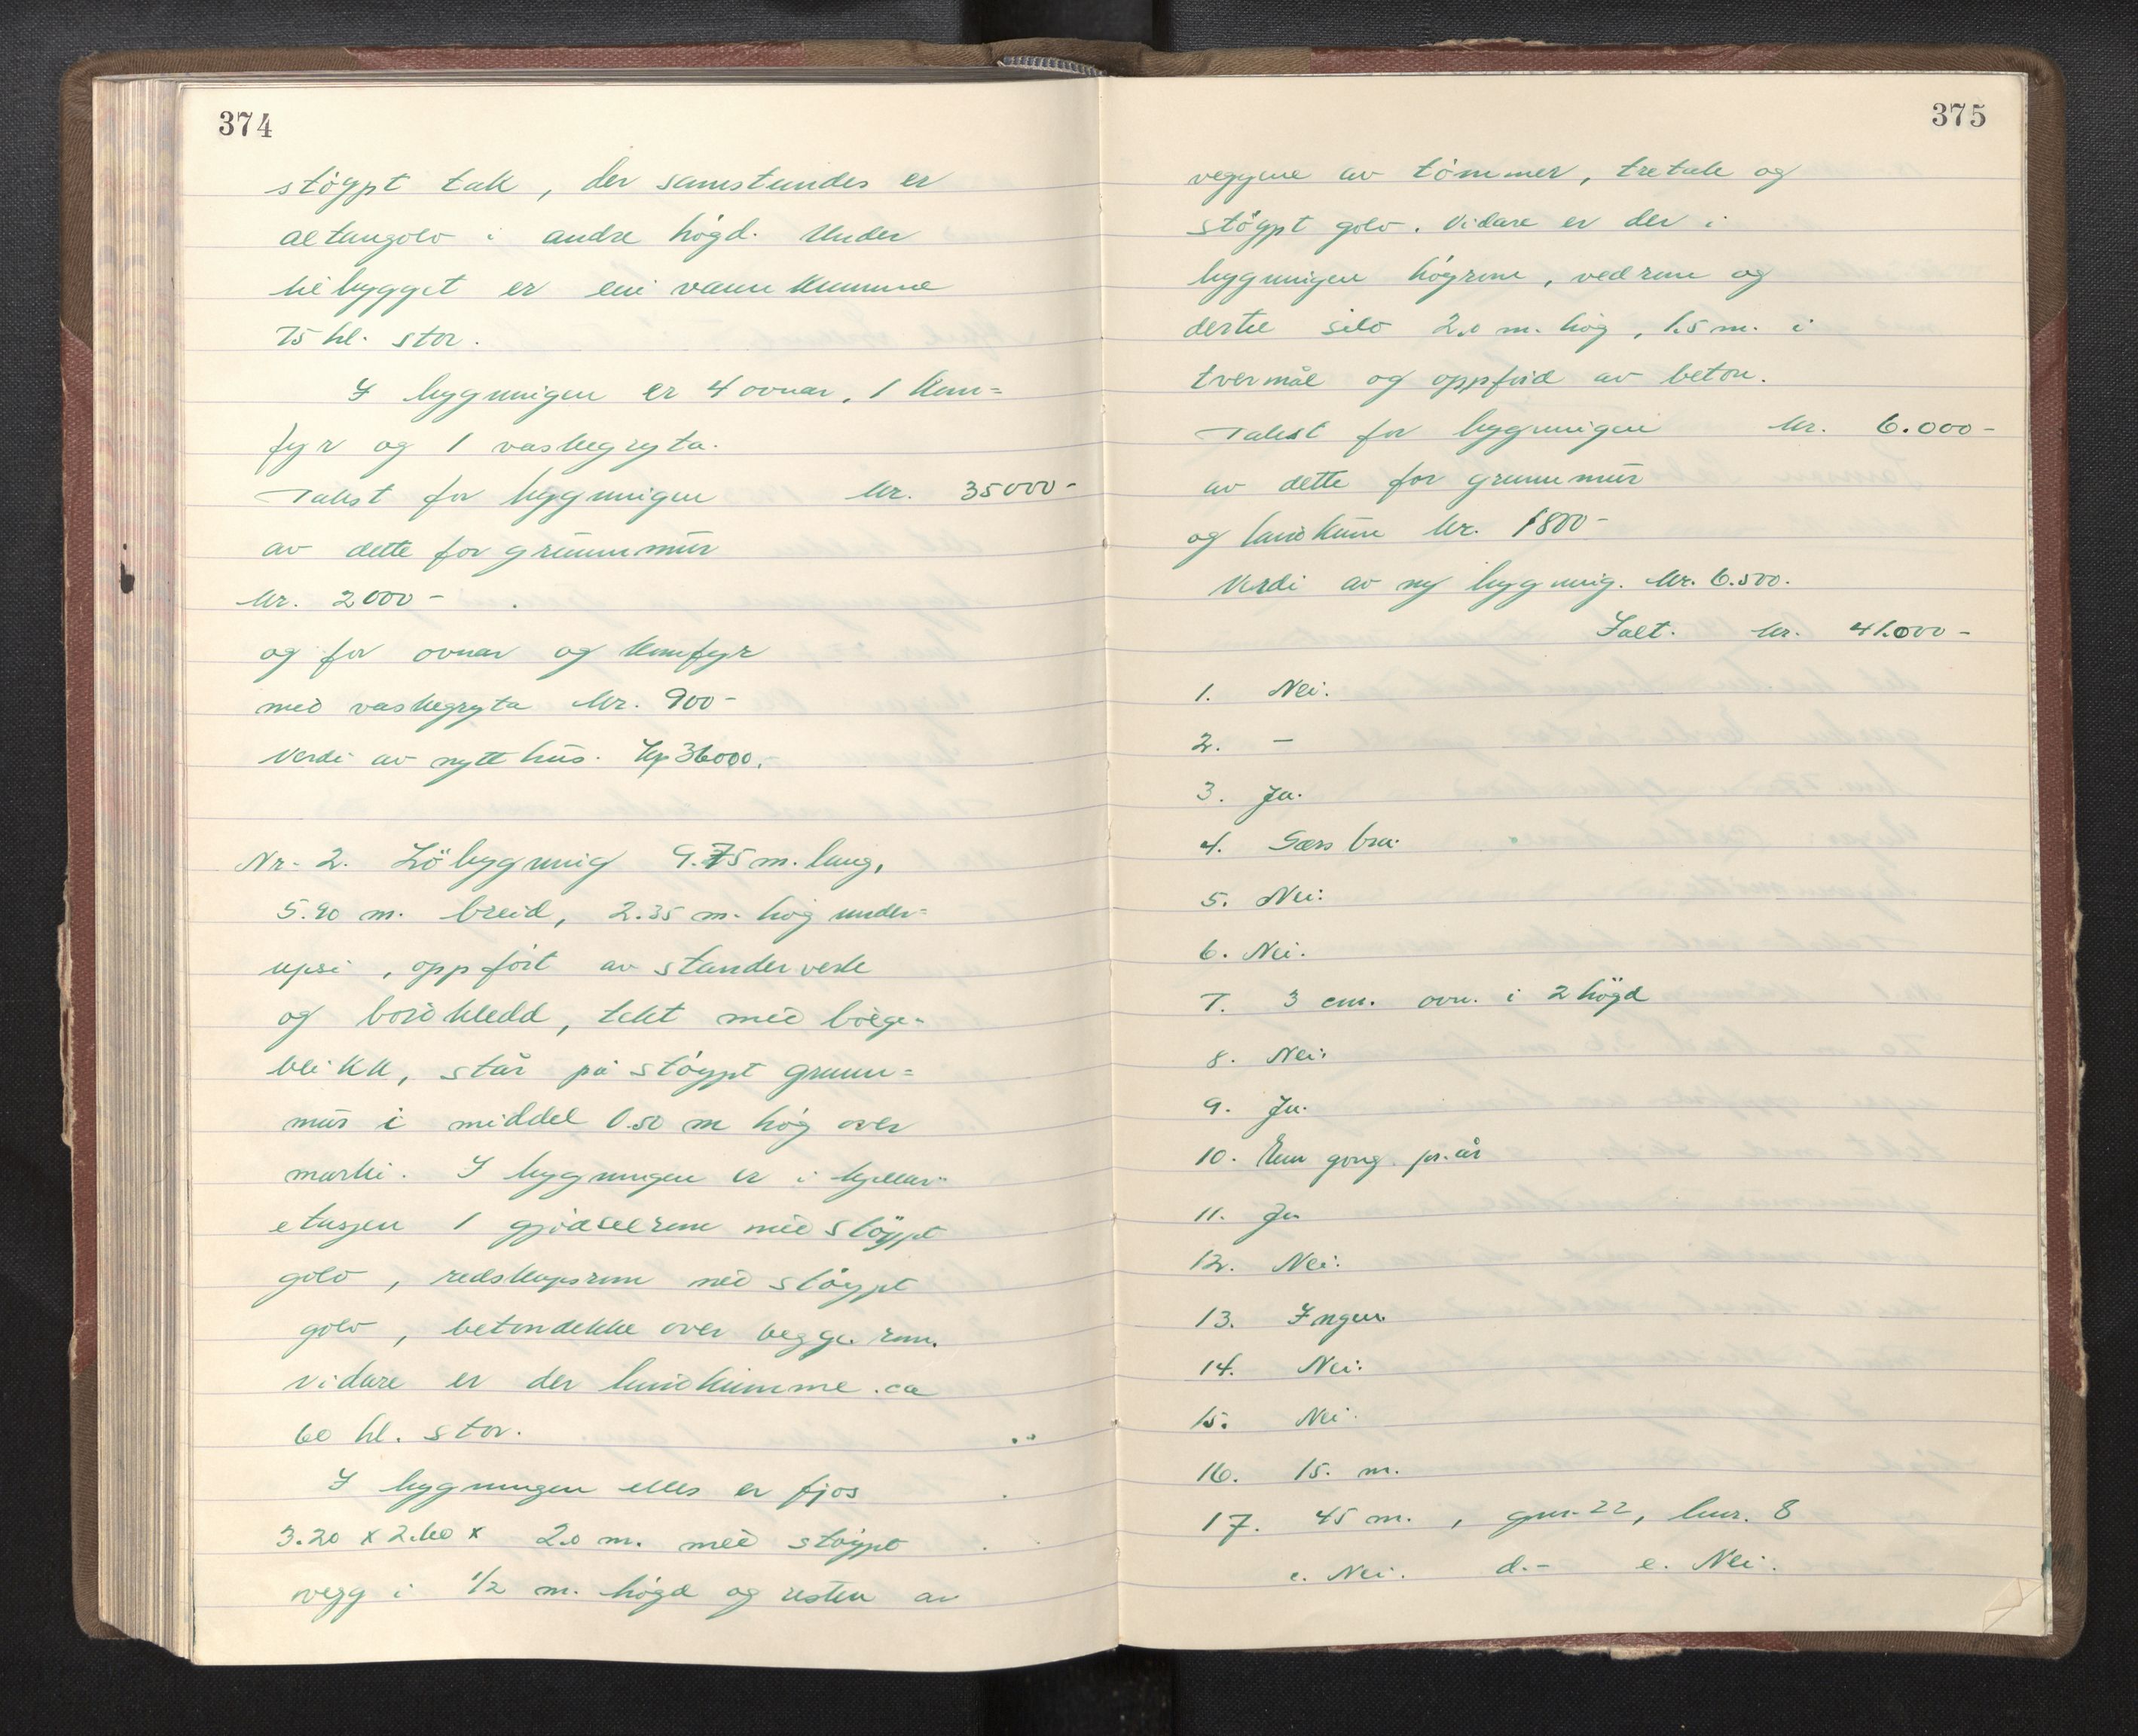 374
støypt tak, der samstundes er
altangolv i andre høgd. Under
tilbygget er ein vannkumme
75 hl. stor.
I bygningen er 4 ovnar, 1 kom=
fyr og 1 vaskegryta.
Takst for bygningen kr. 35000-
av dette for grunnmur
kr. 2000-
og for ovnar og komfyr
med vaskegryta kr. 900-
Verdi av nytt hus. Kr 36000.
Nr. 2. Löbygning 9.75 m. lang,
5.90 m. breid, 2.35 m. høg under=
upsi, oppført av standerverk
og bordkledd, tekt med bølge-
blikk, står på støypt grunn=
mur i middel 0.50 m høg over
marki. I bygningen er i kjellar-
etasjen 1 gjødselrom med støypt
golv, redskapsrom med støypt
golv, betondekke over begge rom.
vidare er der landkumme ca
60 hl. stor.
I bygningen elles er fjos
3.20 x 2.60 x 2.0 m. med støypt
vegg i 1/2 m. høgd og resten av
375
veggene av tømmer, tretak og
støypt golv. Vidare er der i
bygningen høyrom, vedrom og
dertil silo 2.0 m. høg, 1.5 m. i
tvermål og oppförd av beton.
Takst for bygningen kr. 6.000-
av dette for grunnmur
og landkum kr. 1800-
Verdi av ny bygning. kr. 6.500.
Ialt. kr. 41.000-
1. Nei.
2. -
3. Ja.
4. Særs bra.
5. Nei.
6. Nei.
7. 3 em. ovn. i 2 högd
8. Nei.
9. Ja.
10. Ein gong. pr. år
11. Ja
12. Nei.
13. Ingen.
14. Nei.
15. Nei.
16. 15. m.
17. 45 m., gnr. 22, bnr. 8
c. Nei. d. - e. Nei.